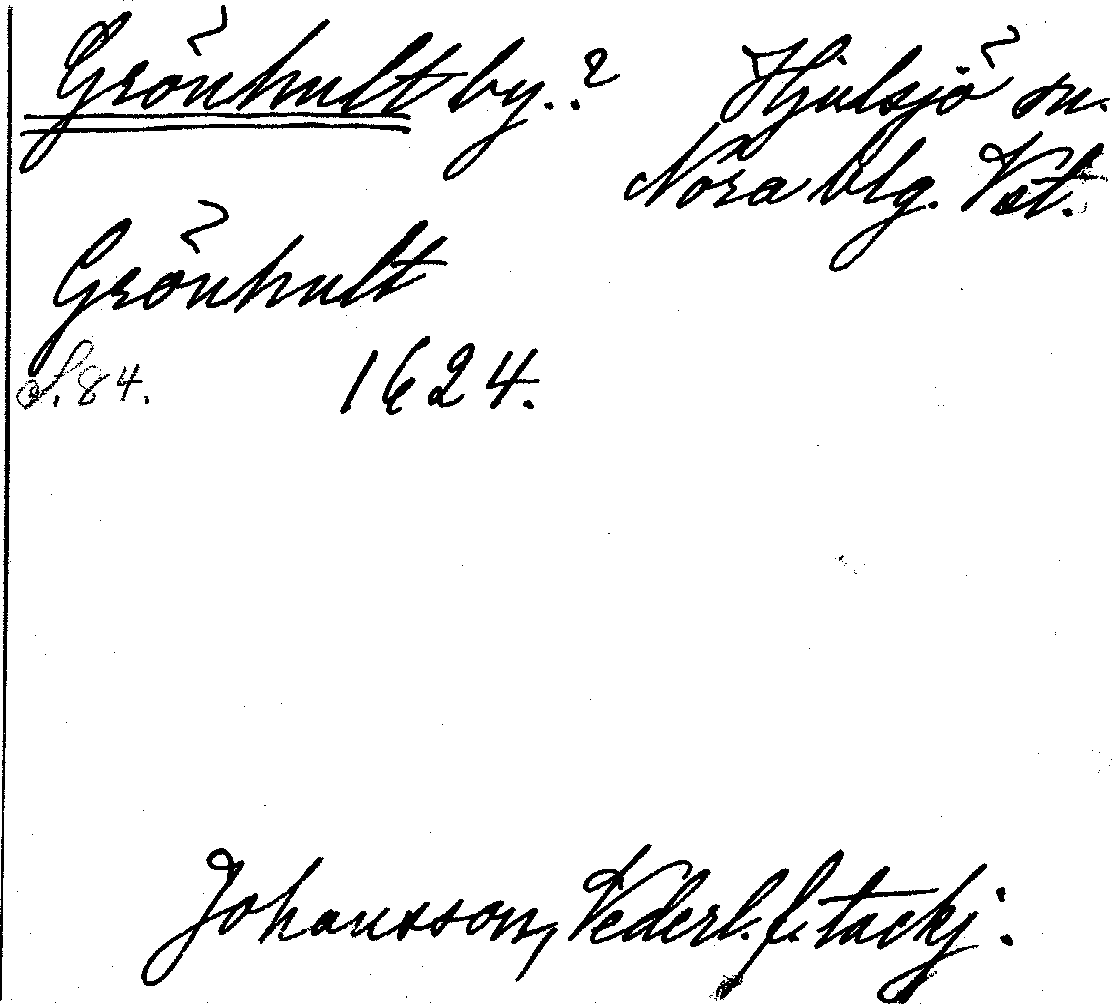 Grönhult by..? Hjulsjö sn.
Nora blg. Vst.
Grönhult
S. 84. 1624.
Johansson, Vederl. f. tackj.